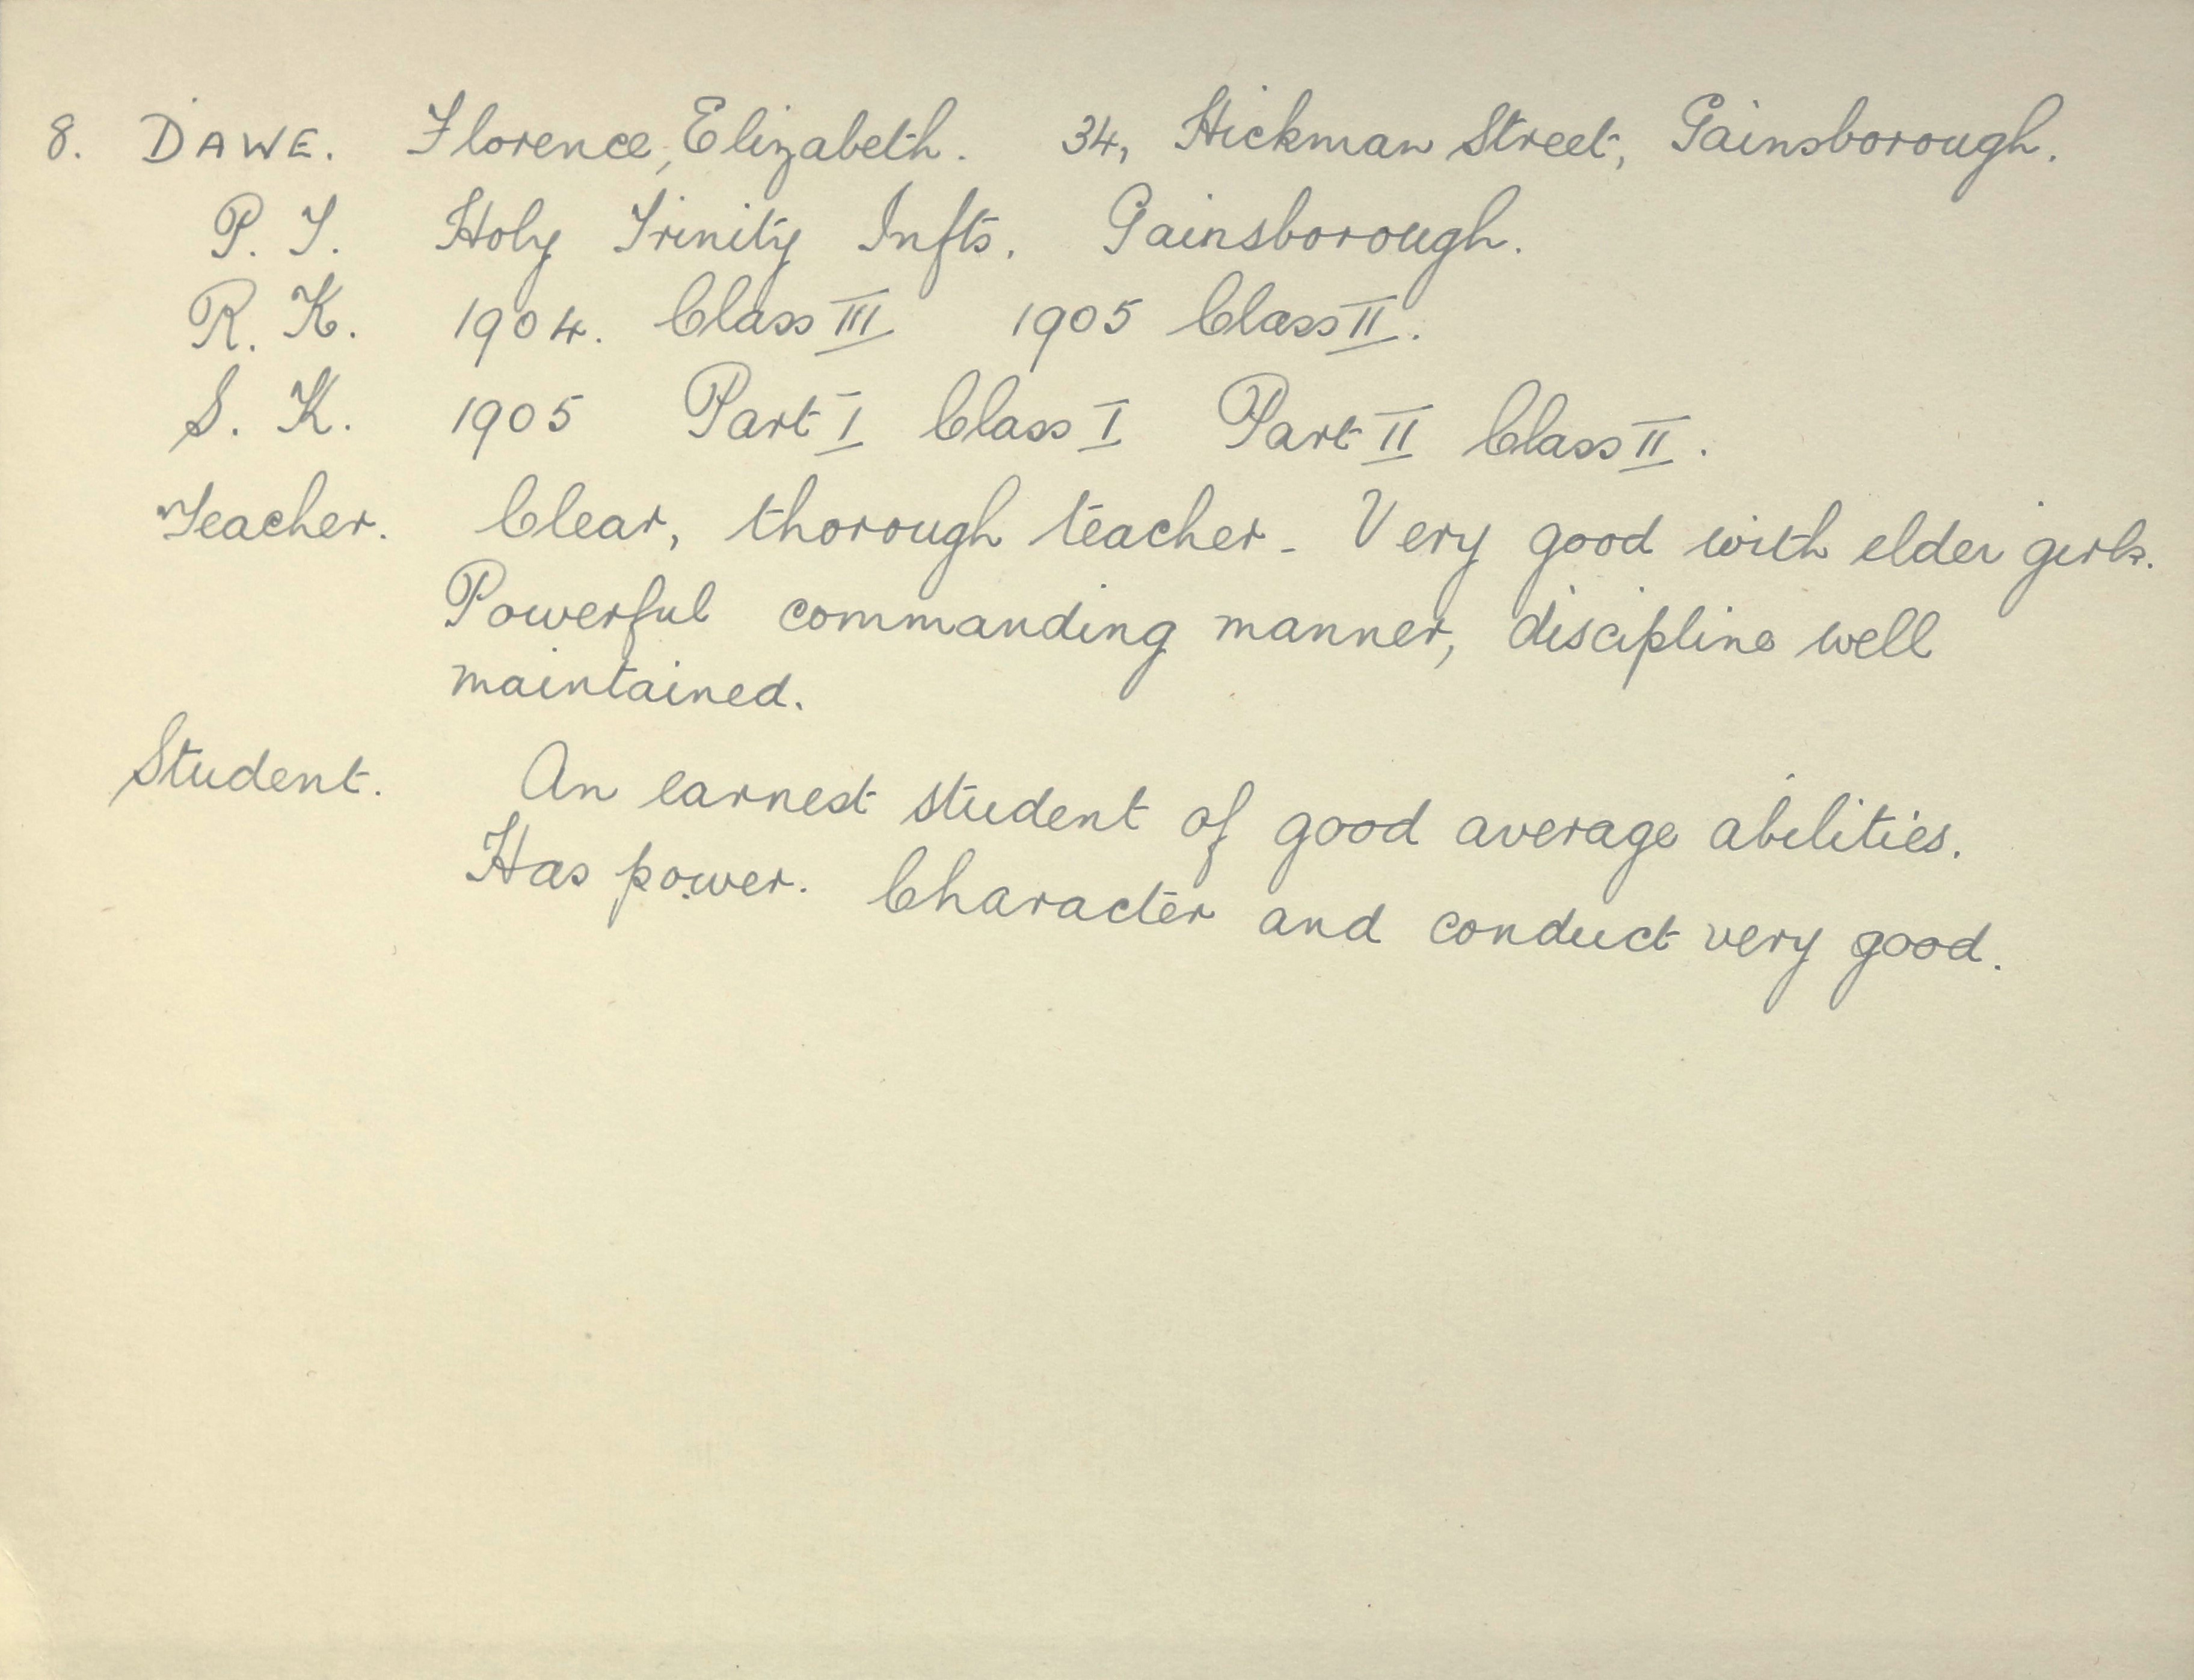 8. DAWE. Florence, Elizabeth. 34, Hickman Street, Gainsborough.
P. T. Holy Trinity Infts. Gainsborough.
R. K. 1904. Class III 1905 Class II.
S. K. 1905 Part I Class I Part II Class II.
Teacher. Clear, thorough teacher - Very good with elder girls.
Powerful commanding manner, discipline well
maintained.
Student. An earnest student of good average abilities.
Has power. Character and conduct very good.